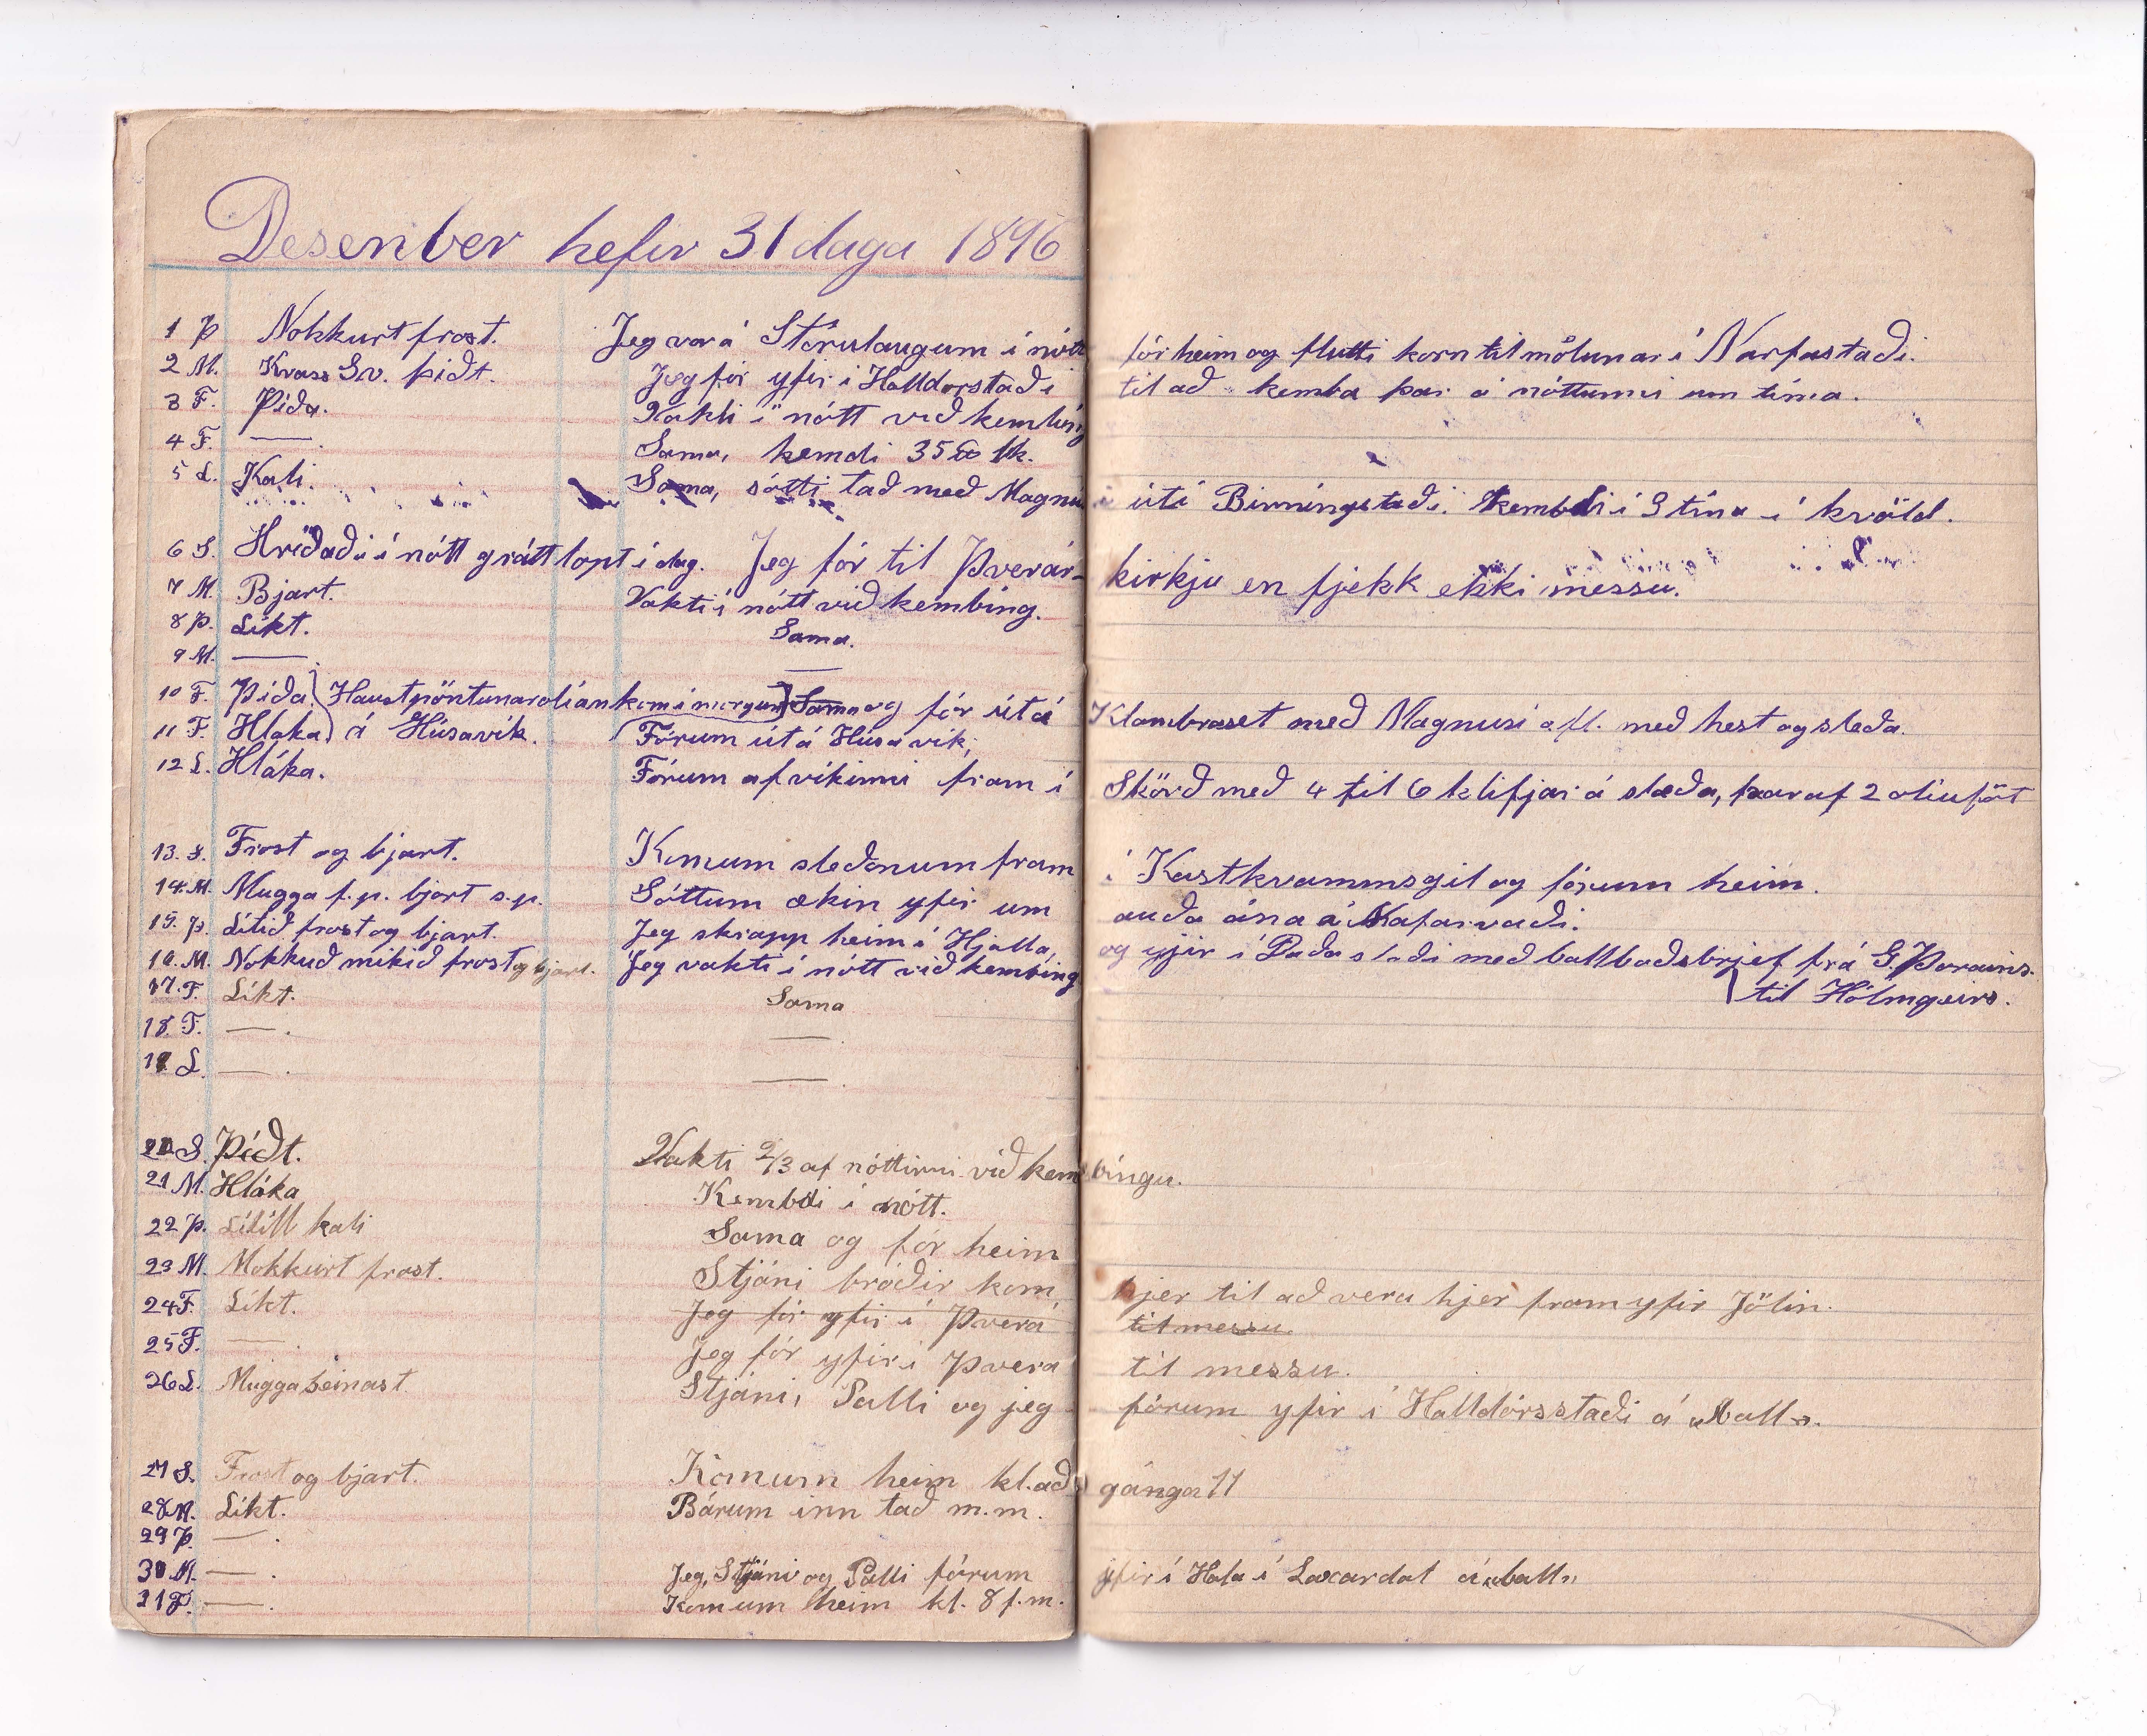 Desenber hefir 31 daga 1896
1 Þ Nokkurt frost. Jeg var á Stórulaugum í nótt fór heim og flutti korn til mölunar í Narfastaði.
2 M. Kvass Sv. þiðt. Jeg fór yfir í Halldorstaði til að kemba þar á nóttunni um tíma.
3 F. Þíða. Vakti í nótt við kembíng
4 F. —— . Sama, kemdi 35 tk.
5 L. Kali. Sama, sótti tað með Magnusi útí Birníngstaði. kembdi í 3 tíma í kvöld.
6 S. Hríðaði í nótt grátt lopt í dag. Jeg fór til Þverár- kirkju en fjekk ekki messu.
7 M. Bjart. Vakti í nótt við kembíng.
8 Þ. Líkt. Sama.
9 M. —— . ——
10 F. Þíða. Haustpöntunarolían kom í morgun Sama og fór útá Klambraset með Magnusi o.fl. með hest og sleða.
11 F. Hláka á Húsavík. Fórum útá Húsavík,
12 L. Hláka. Fórum af víkinni fram í Skörð með 4 til 6 klifjar á sleða, þaraf 2 olíuföt
13. S. Frost og bjart. Komum sleðonum fram í Kastkvammsgil og fórum heim.
14. M. Mugga f.p. bjart s.p. Sóttum ækin yfir um auða ána á Nafarvaði.
15. Þ. Lítið frost og bjart. Jeg skrapp heim í Hjalla, og yfir í Daðastaði með ballboðsbrjef frá G. Þorarins.
16. M. Nokkuð mikið frost og bjart. Jeg vakti í nótt við kembíng til Hólmgeirs.
17. F. Líkt. Sama
18. F. —— . —— .
19. L. —— . —— .
20 S. Þiðt. Vakti 2/3 af nóttinni við kembíngu.
21 M. Hláka Kembdi í nótt.
22 Þ. Lítill kali Sama og fór heim
23 M. Nokkurt frost. Stjáni bróðir kom hjer til að vera hjer fram yfir Jólin.
24 F. Líkt. Jeg fór yfir í Þverá til messu
25 F. —— . Jeg fór yfir í Þverá til messu.
26 L. Mugga seinast. Stjáni, Palli og jeg fórum yfir í Halldórsstaði á „Ball“.
27 S. Frost og bjart. Komum heim kl. að gánga 11
28 M. Líkt. Bárum inn tað m.m.
29 Þ. —— .
30 M. —— . Jeg, Stjáni og Palli fórum yfir í Hola í Laxardal á „ball„
31 F. —— . Komum heim kl. 8 f.m.